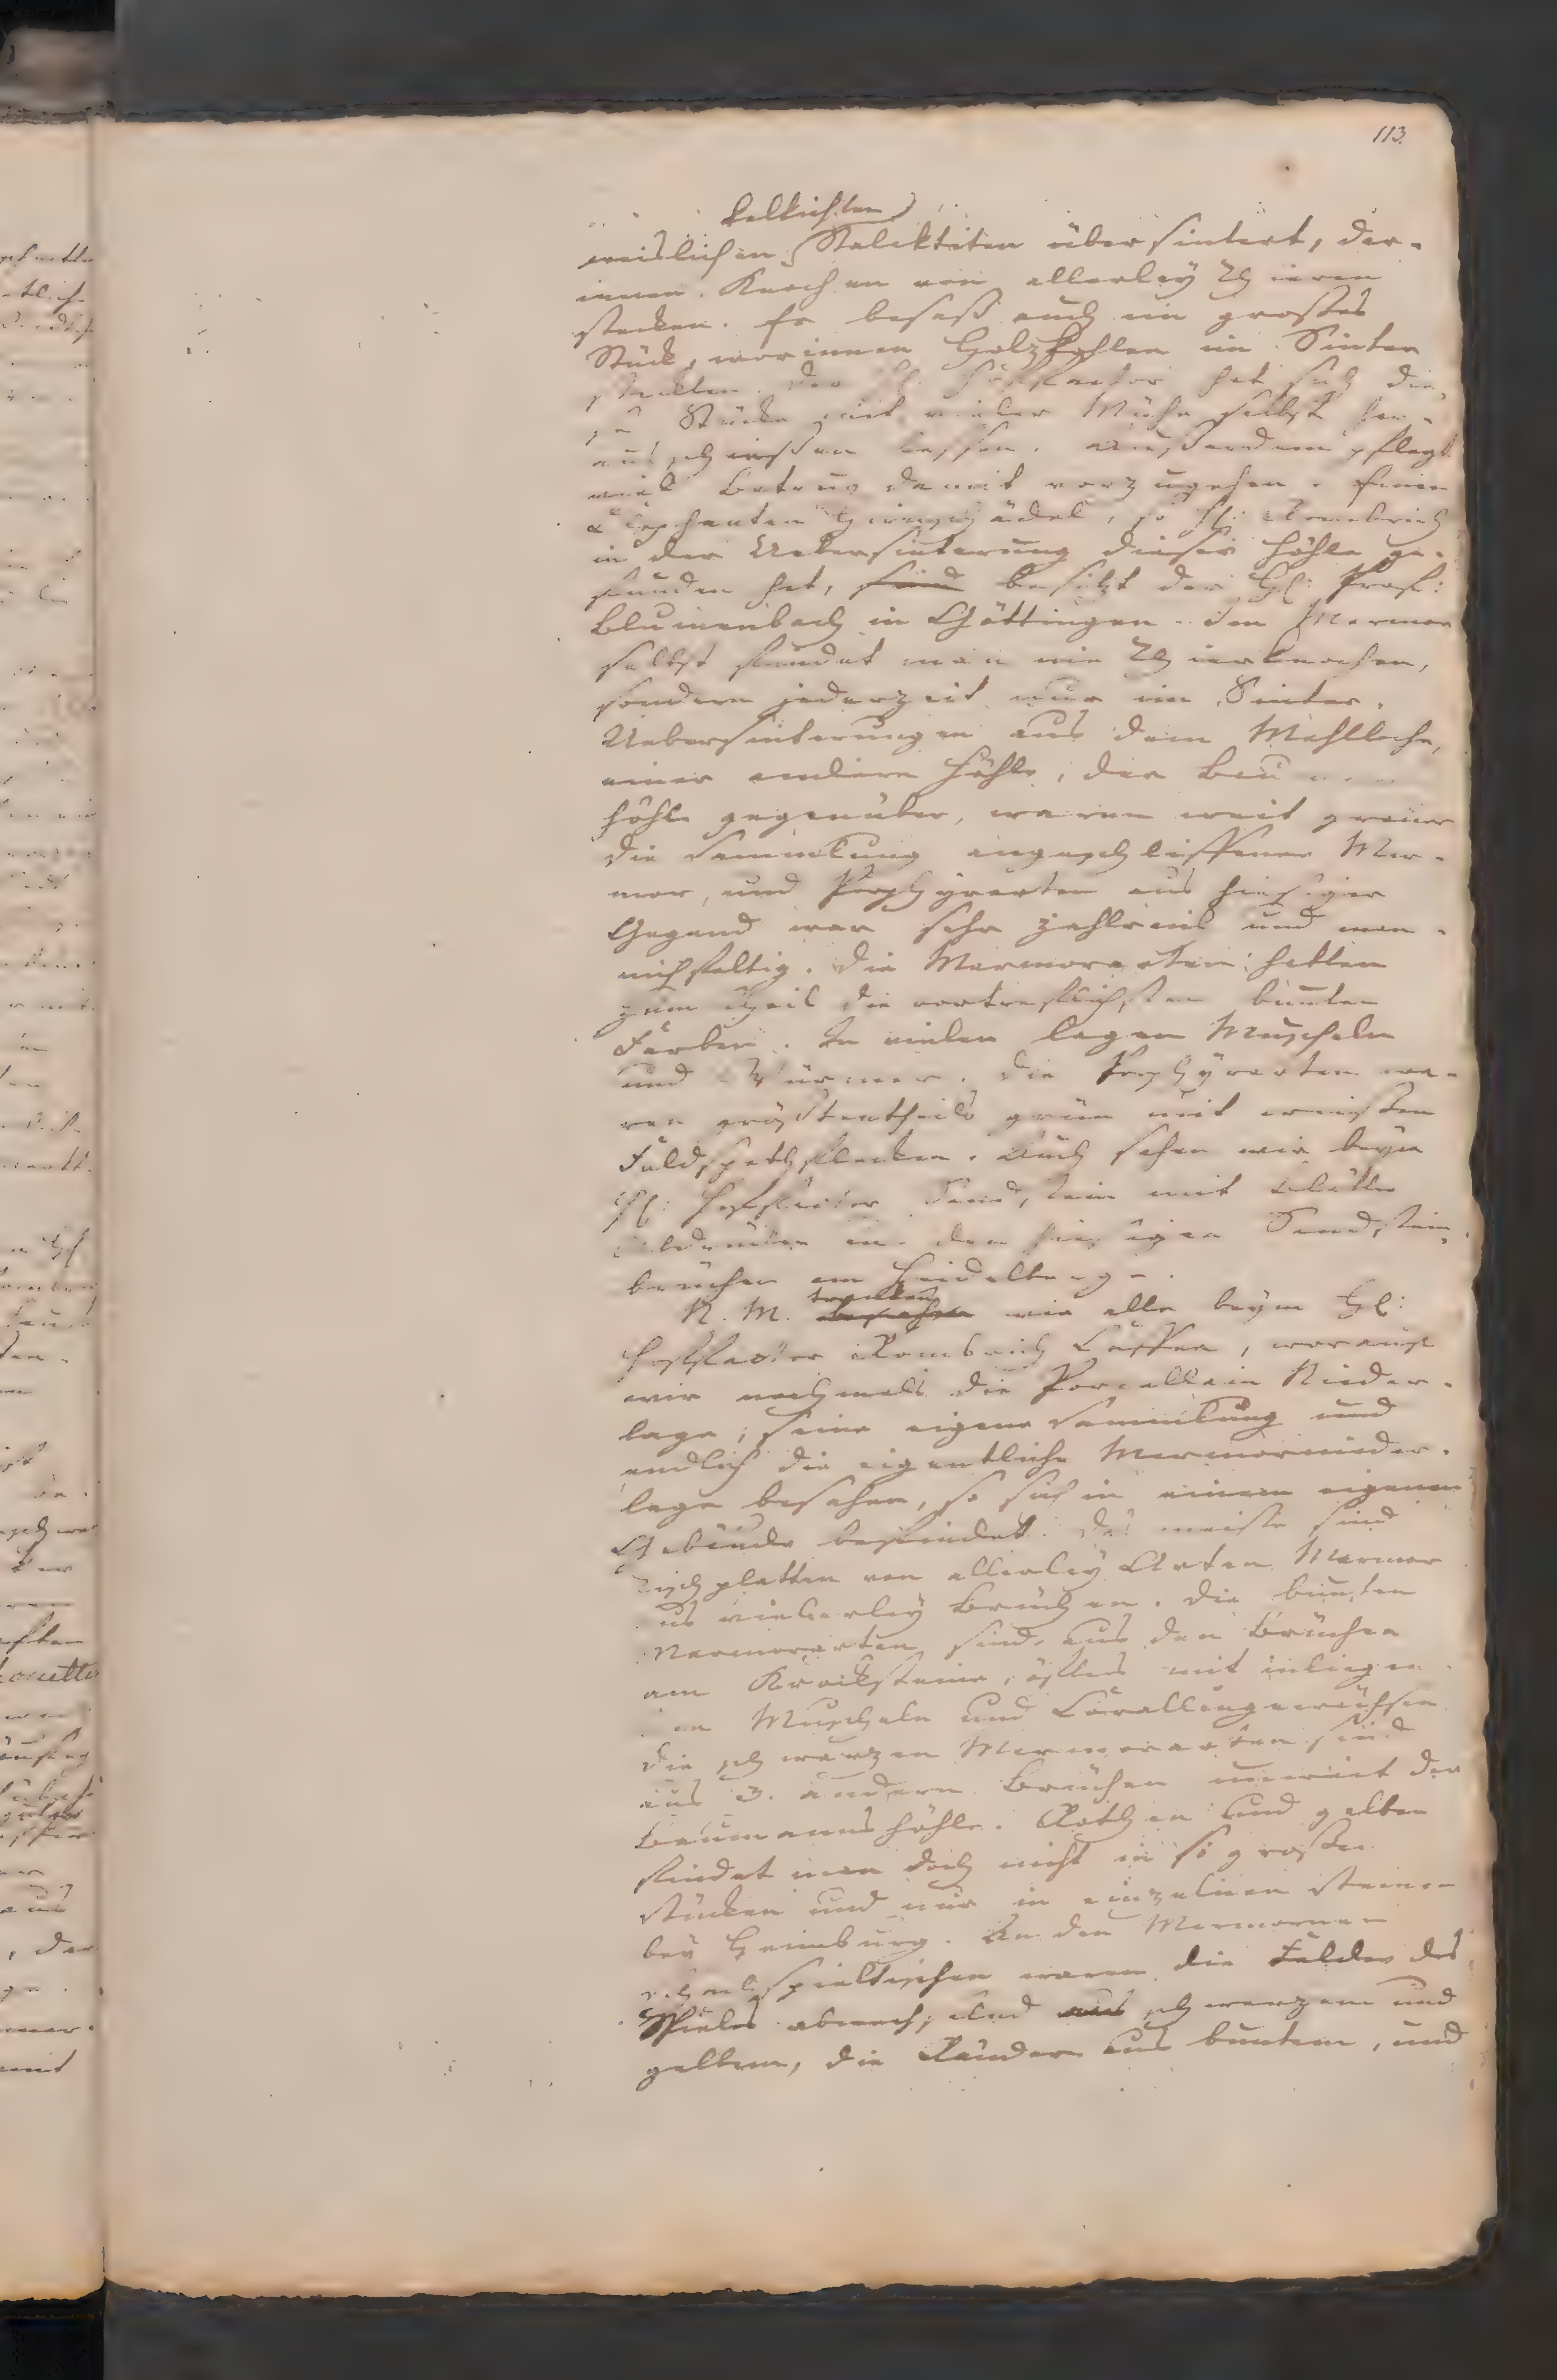 113.
kalkichten
weislichen Stalaktiten über sintert, dar-
innen Knochen von allerley Thieren
stecken. Er besaß auch ein großes
Stück, worinnen Holzkohlen im Sinter
steckten. Der H: Hoffactor hat sich die-
se Stücke mit vieler Mühe selbst her-
aus schiessen lassen. Ausserdem pflegt
viel Betrug damit vorzugehen. Einen
Elephanten Hirnschädel, so H: Rombrich
in der Uebersinterung dieser Höhle ge-
funden hat, besitzt der H: Prof:
Blumenbach in Göttingen. Im Marmor
selbst findet man nie Thierknochen,
sondern jederzeit nur im Sinter.
Uebersinterungen aus dem Mehlloche,
einer andern Höhle, der Bau
höhle gegenüber, waren weit grauer
Die Sammlung angeschliffener Mar-
mor, und Porphyrarten aus hiesiger
Gegend war sehr zahlreich und man-
nichfaltig. Die Marmorarten hatten
zum Theil die vortreflichsten bunten
Farben. In vielen lagen Muscheln
und Würmer. Die Porphyrarten wa-
ren größtentheils grün mit weissten
Feldspathflecken. Auch sahen wir beym
H: Hoffactor Sandstein mit Blätter
in den hiesigen Sandstein-
brüchen am Heidelberge.
N. M. tranken wir alle beym H:
Hoffactor Rombrich Caffee, worauf
wir nachmals die Porcellain Nieder-
lage, seine eigene Sammlung und
endlich die eigentliche Marmornieder-
lage besahen, so sich in einem eigenen
Gebäude befindet. Das meiste sind
Tischplatten von allerley Arten Marmor
aus vielerley Brüchen. Die bunten
Marmorarten sind aus den Brüchen
am Krocksteine, öfters mit inliegen-
den Muscheln und Corallengewächsen
Die schwarzen Marmorarten sind
aus 3. andern Brüchen unweit der
Baumannshöhle. Rothen und gelben
findet man doch nicht in so großen
Stücken und nur in einzelnen Steinen
bey Heimburg. An den Marmornen
Schachspieltischen waren die Felder des
Spieles abwechselnd aus schwarzem und
gelbem, die Ränder aus buntem, und